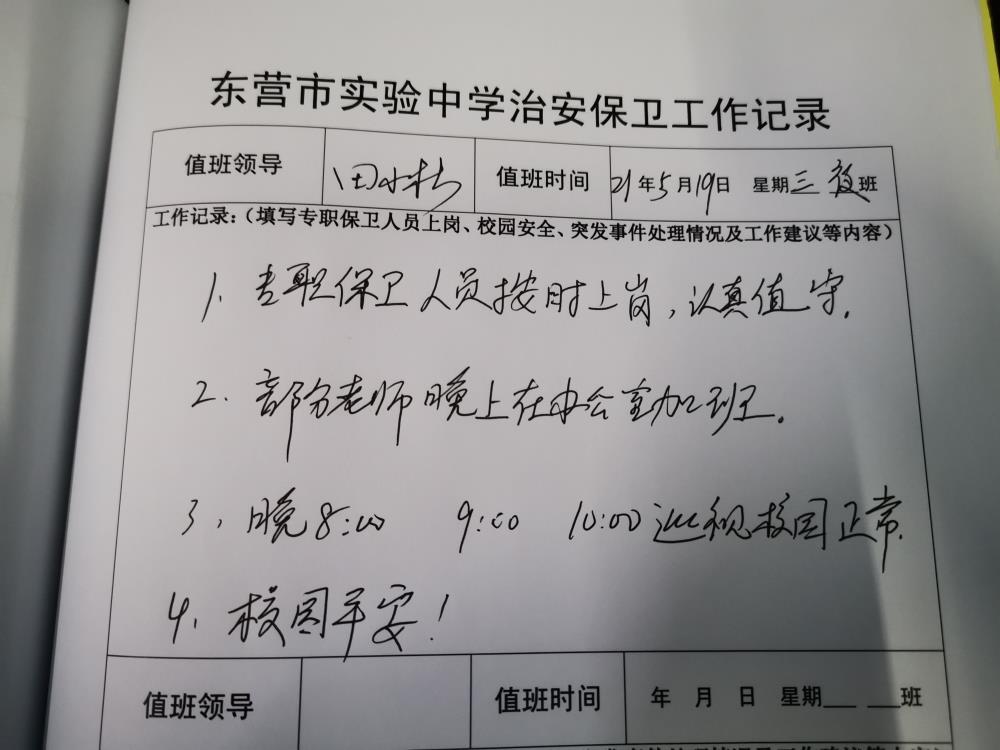 东营市实验中学治安保卫工作记录
值班领导 田水村 值班时间 21年5月19日 星期三 夜班
工作记录:(填写专职保卫人员上岗、校园安全、突发事件处理情况及工作建议等内容)
1. 专职保卫人员按时上岗,认真值守.
2. 部分老师晚上在办公室加班.
3, 晚8:00 9:00 10:00巡视校园正常.
4. 校园平安!
值班领导 值班时间 年 月 日 星期___ ___班